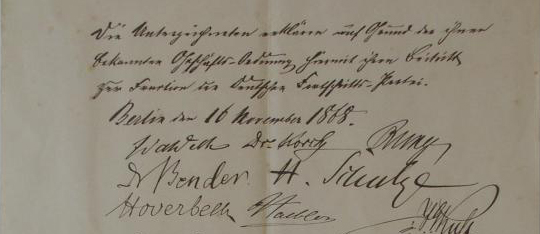 Die Unterzeichneten erklären auf Grund der ihnen
bekannten Geschäfts-Ordnung hiermit ihren Beitritt
zur Fraction der Deutschen Fortschritts-Partei.
Berlin den 16 November 1868.
Waldeck Dr. Kosch Runge
Dr Bender H. Schulze
Hoverbeck